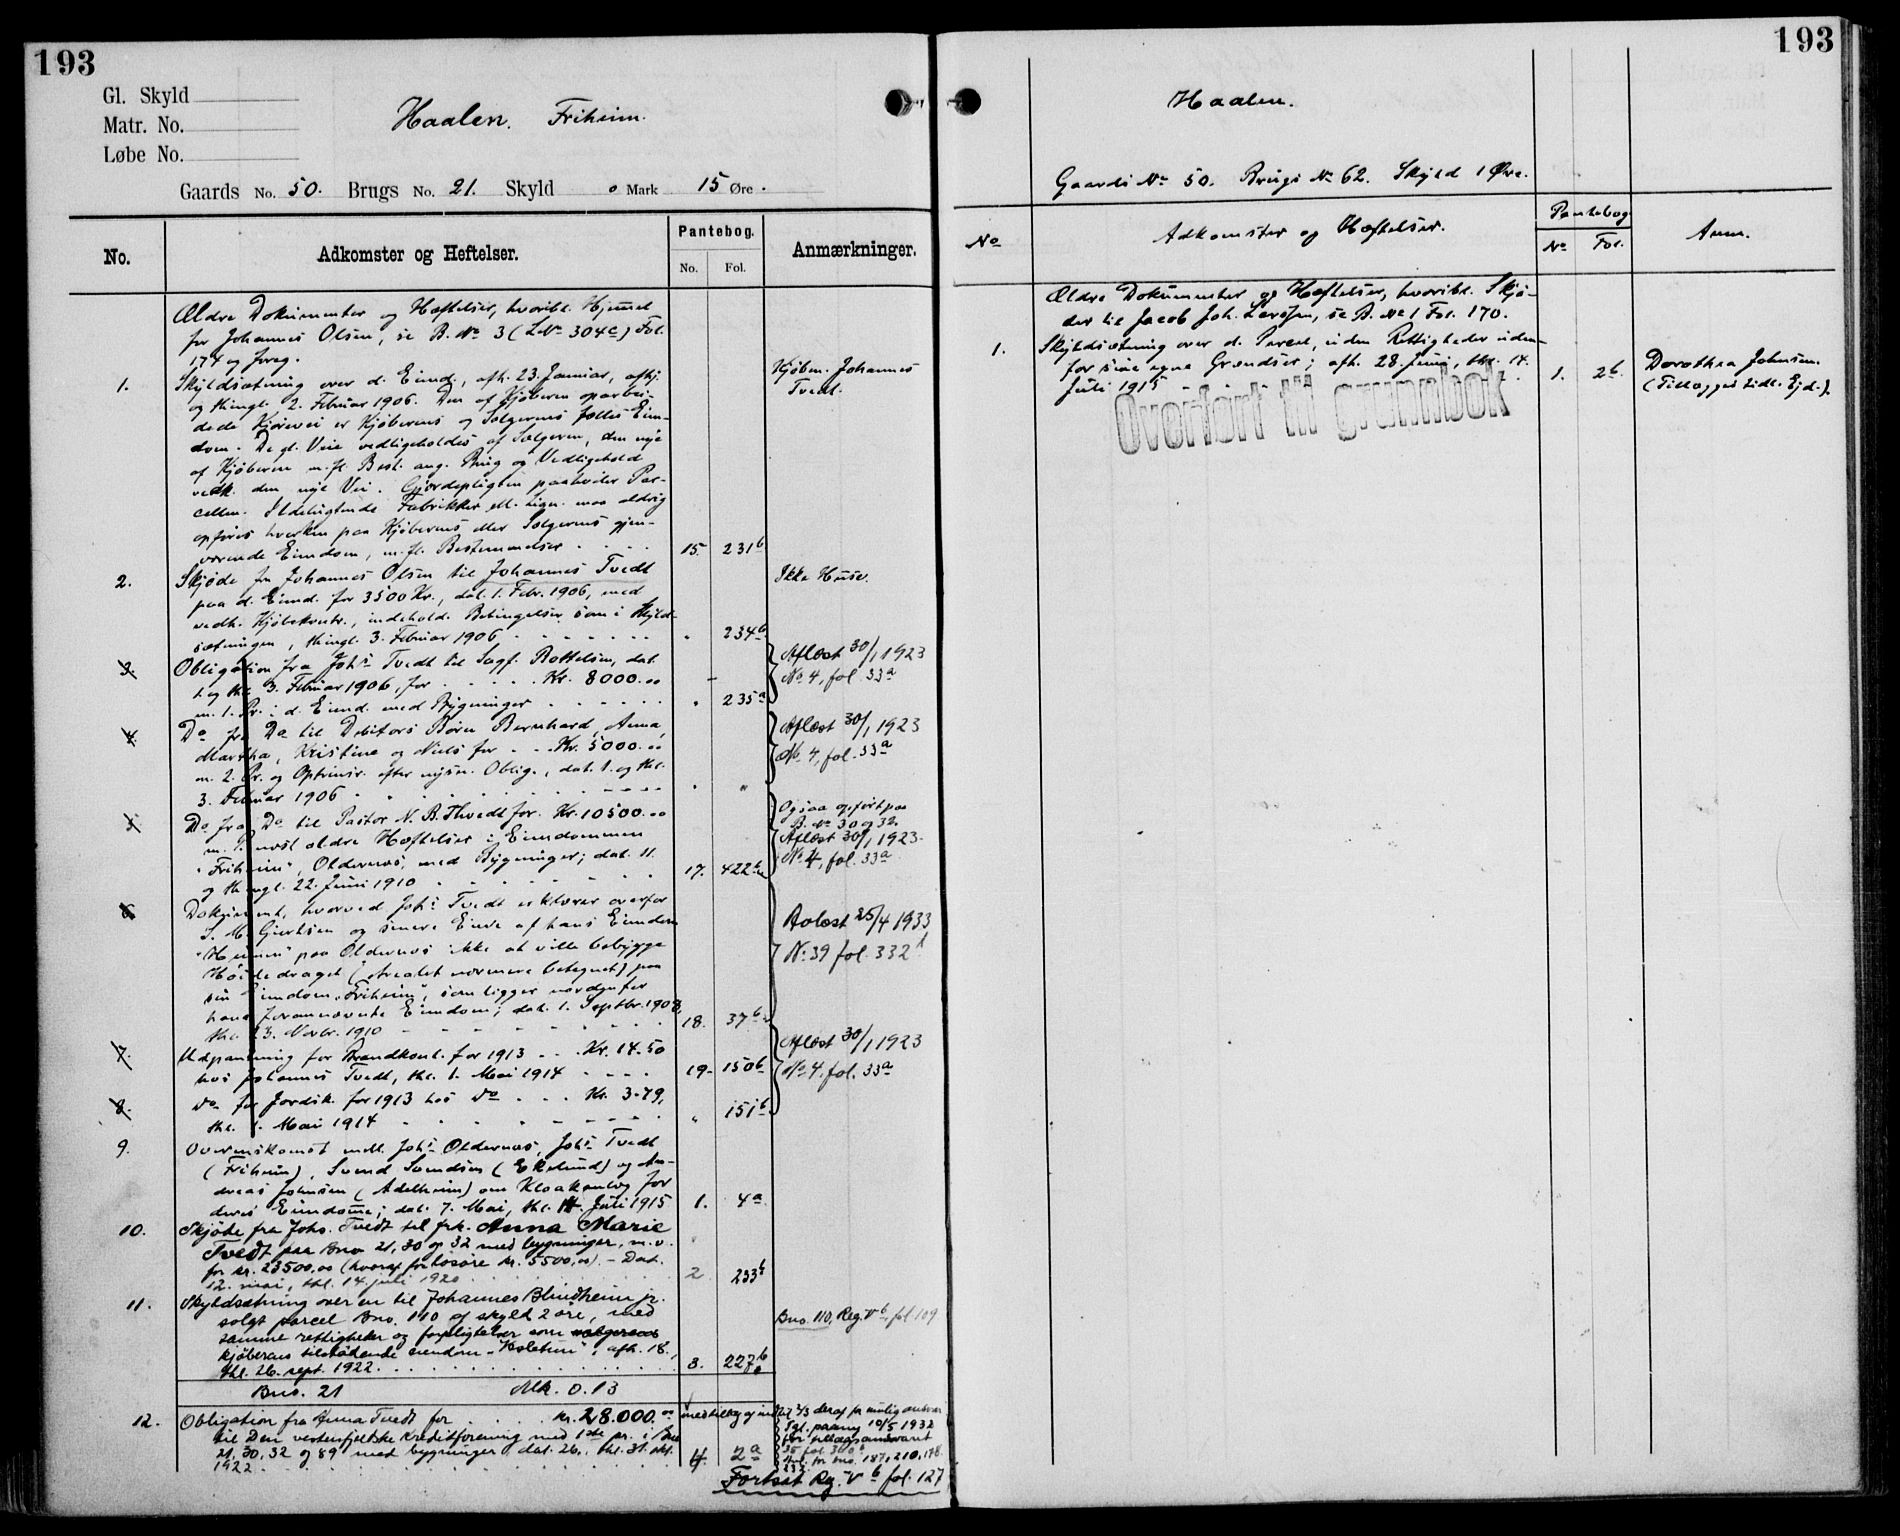 193
Gl. Skyld
Matr. No.
Løbe No.
Haalen. Friheim.
Gaards No. 50. Brugs No. 21. Skyld 0 Mark 15 Øre.
No. Adkomster og Heftelser. Pantebog. No. Fol. Anmærkninger.
Ældre Dokumenter og Hæftelser, hvoribl. Hjemmel
for Johannes Olsen, se B. No 3 (LNo 304c) Fol.
174 og foreg.
1. Skyldsætning over d. Eiend., afh. 23. Januar, afhj.
og thingl. 2. Februar 1906. Den af Kjøberen oparbei-
dede Kjørevei er Kjøberens og Sælgerens fælles Eien-
dom. De gl. Veie vedligeholdes af Sælgeren, den nye
af Kjøberen m. fl. Best. ang. Brug og Vedligehold
vedk. den nye Vei. Gjerdepligten paahviler Par-
cellen. Ildelugtende Fabrikker ell. Lign. maa aldrig
opføres hverken paa Kjøberens eller Sælgerens gjen-
værende Eiendom, m. fl. Bestemmelser 15. 231b
Kjøbm. Johannes
Tvedt.
2. Skjøde fra Johannes Olsen til Johannes Tvedt
paa d. Eiend. for 3500 Kr., dat. 1. Febr. 1906, med
vedh. Kjøbekontr., indehold. Betingelser som i Skyld-
sætningen, thingl. 3. Februar 1906 " 234b
Ikke Huse.
3. Obligation fra Johs Tvedt til Sagf. Rottelsen, dat.
1. og thl. 3. Februar 1906, for Kr. 8000.00
m. 1. Pr. i d. Eiend. med Bygninger " 235a
Aflæst 30/1 1923
No 4, fol. 33a
4. Do fra Do til Debitors Børn Bernhard, Anna,
Martha, Kristine og Niels for Kr. 5000.00
m. 2. Pr. og Optrinsr. efter nysn. Oblig., dat. 1. og thl.
3. Februar 1906 " "
Aflæst 30/1 1923
No 4, fol. 33a
5. Do fra Do til Pastor N. B. Thvedt for Kr. 10500.00
m. Pr. næst ældre Hæftelser i Eiendommen
"Friheim", Oldernæs, med Bygninger; dat. 11.
og thingl. 22. Juni 1910 17. 422b
Ogsaa opført paa
B. No 30 og 32.
Aflæst 30/1 1923.
No 4, fol. 33a
6. Dokument, hvorved Johs Tvedt erklærer overfor
S. M. Gjertsen og senere Eiere af hans Eiendom
paa Oldernæs ikke at ville bebygge
Høidedraget (Arealet nærmere betegnet) paa
sin Eiendom "Friheim", som ligger nordenfor
hans forannævnte Eiendom; dat. 1. Septbr. 1908,
thl. 23. Novbr. 1910 18. 37b
Avlæst 25/4 1933
No 39 fol. 332
7. Udpantning for Brandkont. for 1913 Kr. 14.50
hos Johannes Tvedt, thl. 1. Mai 1914 19. 150b
Aflæst 30/1 1923
No 4. fol. 33a
8. do for Jordsk. for 1913 hos do Kr. 3.79,
thl. 1. Mai 1914 " 151b
9. Overenskomst mell. Johs Oldernæs, Johs Tvedt
(Friheim), Svend Svendsen (Ekelund) og An-
dreas Johnsen (Adelheim) om Kloakanlæg for
deres Eiendomme; dat. 7. Mai, thl. 14. Juli 1915 1. 4a
10. Skjøte fra Johs. Tvedt til frk. Anna Marie
Tvedt paa Bno 21, 30 og 32 med bygninger, m.v.
for kr. 23500,00 (hvoraf for løsøre kr. 5500,00). – Dat.
12. mai, thl. 14. juli 1920 2 233b
11. Skyldsætning over en til Johannes Blindheim jr.
solgt parcel Bno. 110 af skyld 2 øre, med
samme rettigheter og forpligtelser som sælgerens
kjøberens tilstødende eiendom "Kolstein"; afh. 18.,
thl. 26. sept. 1922 3. 227b
Bno. 110, Reg. V b, fol 109
Bno. 21 Mk. 0.13
12. Obligation fra Anna Tvedt for kr. 28.000.00
til Den vestenfjelske kreditforening med 1ste pr. i Bno
21, 30, 32 og 89 med bygninger, dat. 26., thl. 31. okt.
1922 4. 2a
2/3 deraf pr mulig ansvar
Tgl. paany 10/5 1932
for tillægsansvaret
35 fol. 300
Fortsat Reg. V b fol. 127
193
Haalen.
Gaards No 50. Brugs No 62. Skyld 1 Øre.
No Adkomster og Hæftelser. Pantebog No Fol. Anm.
Ældre Dokumenter og Hæftelser, hvoribl. Skjø-
der til Jacob Joh. Larssen, se B. No 1 Fol. 170.
1. Skyldsætning over d. Parcel, uden Rettigheder uden-
for sine egne Grændser; afh. 28. Juni, thl. 14.
Juli 1915 1. 2b
Dorothea Johnsen
(Tillægges tidl. Ejd.).
Overført til grunnbok